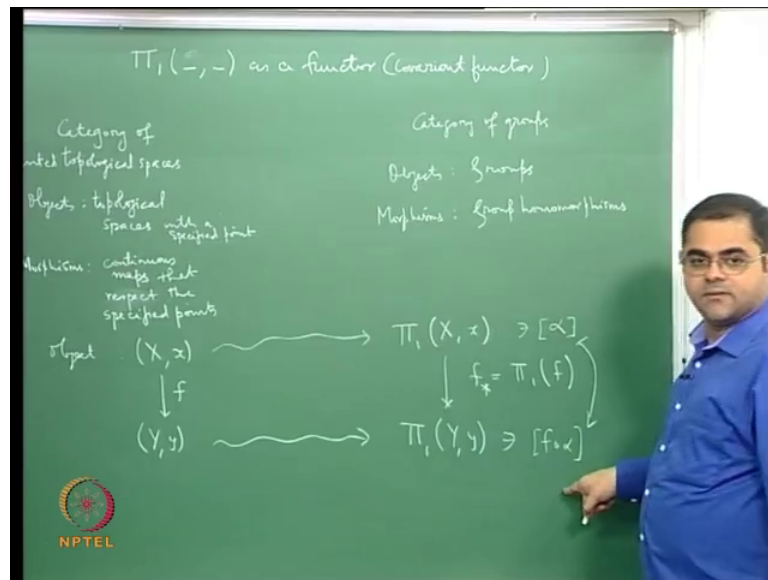 Π₁(–, –) as a functor (covariant functor)
Category of
nted topological spaces
Objects: topological
spaces with a
specified point
Morphisms: continuous
maps that
respect the
specified points
Category of groups
Objects: Groups
Morphisms: Group homomorphisms
Object : (X, x) Π₁(X, x) ∋ [α]
f f⁎ = Π₁(f)
(Y, y) Π₁(Y, y) ∋ [f∘α]
NPTEL